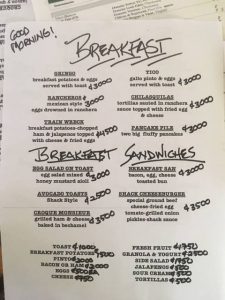 GOOD
MORNING!
BREAKFAST
GRINGO
breakfast potatoes & eggs
served with toast ¢3000
TICO
gallo pinto & eggs
served with toast ¢3000
RANCHEROS
mexican style
eggs drowned in ranchero
CHILAQUILAS
tortillas sauted in ranchera
sauce topped with fried egg
& cheese
TRAIN WRECK
breakfast potatoes-chopped
ham & jalapenos topped
with cheese & fried eggs
PANCAKE PILE
two big fluffy pancakes
BREAKFAST SANDWICHES
EGG SALAD ON TOAST
egg salad served on
honey mustard aioli
BREAKFAST BAR
bacon, egg, cheese
toasted bun
AVOCADO TOASTS
Shack Style
SHACK CHEESEBURGER
special ground beef
cheese-fried egg
tomato-grilled onion
pickles-shack sauce
CROQUE MONSIEUR
grilled ham & cheese ¢3500
baked in bechamel
TOAST
BREAKFAST POTATOES
PINTO
BACON OR HAM
EGGS
FRESH FRUIT
GRANOLA & YOGURT
SIDE SALAD
JALAPENOS
SOUR CREAM
TORTILLAS